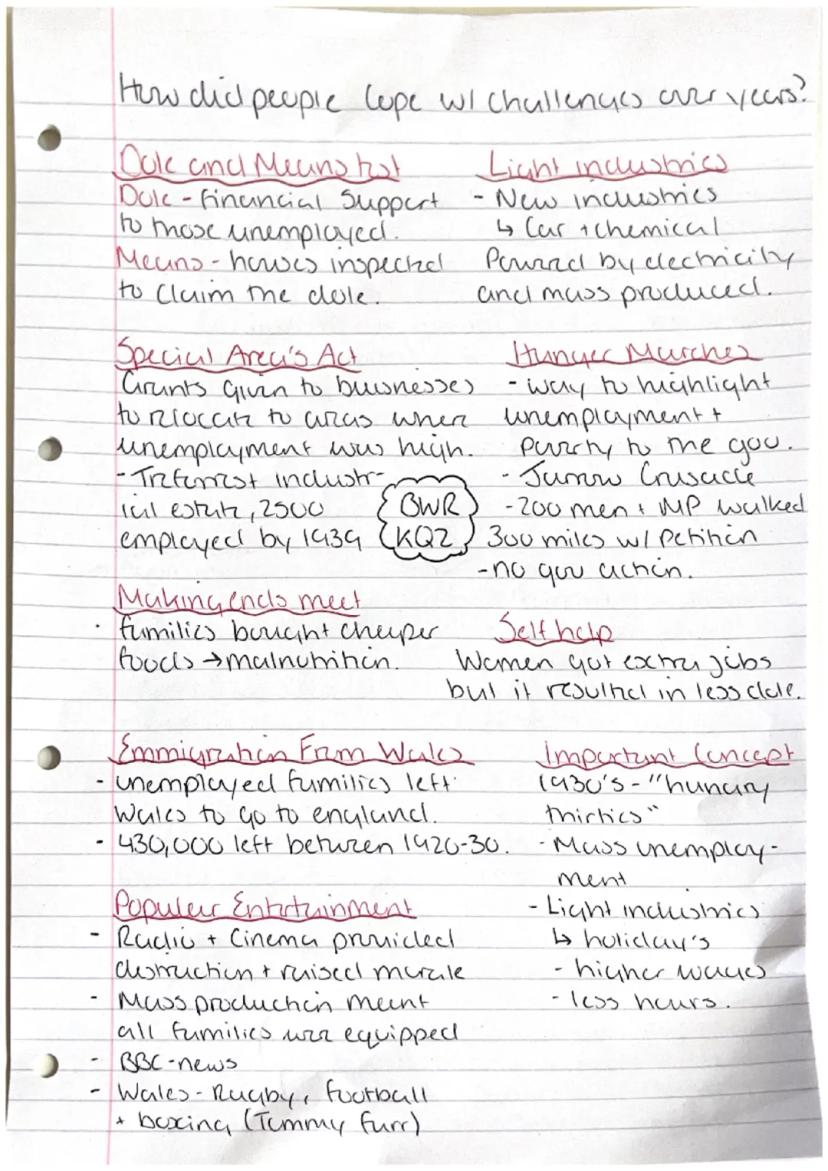 How did people cope w/ challenges over years?
Dole and Means test
Dole - Financial Support
to those unemployed.
Means - houses inspected
to claim the dole.
Light industries
- New industries
↳ Car + chemical
Powered by electricity
and mass produced.
Special Area's Act
Grants given to businesses
to relocate to areas when
unemployment was high.
- Treforest industr-
ial estate, 2500
employed by 1939
Hunger Marches
- way to highlight
unemployment +
poverty to the gov.
- Jarrow Crusade
- 200 men + MP walked
300 miles w/ Petition
- no gov action.
BWR
KQ2
Making ends meet
· families bought cheaper
foods → malnutrition.
Self help
Women got extra jobs
but it resulted in less dole.
Emmigration From Wales
- unemployed families left
Wales to go to england.
- 430,000 left between 1920-30.
Important Concept
1930's - "hungry
thirties"
- Mass unemploy-
ment
- Light industries
↳ holiday's
- higher wages
- less hours.
Popular Entertainment
- Radio + Cinema provided
distruction + raised morale
- Mass production meant
all families were equipped
- BBC - news
- Wales - Rugby, football
+ boxing (Tommy Farr)